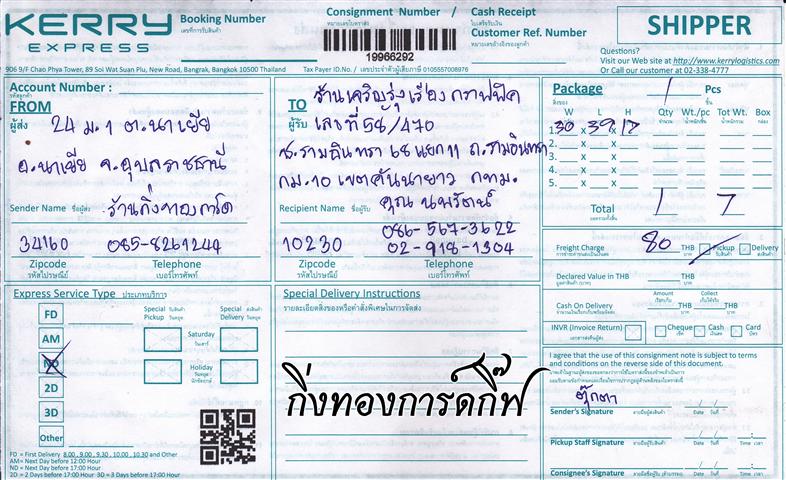 KERRY
EXPRESS
Booking Number
เลขที่การรับสินค้า
Consignment Number /
หมายเลขใบตราส่ง
Cash Receipt
ใบเสร็จรับเงิน
Customer Ref. Number
หมายเลขอ้างอิงของลูกค้า
19966292
SHIPPER
Questions?
Visit our Web site at http://www.kerrylogistics.com
Or Call our customer at 02-338-4777
906 9/F Chao Phya Tower, 89 Soi Wat Suan Plu, New Road, Bangrak, Bangkok 10500 Thailand
Tax Payer ID.No. / เลขประจำตัวผู้เสียภาษี 0105557008976
Account Number :
รหัสลูกค้า
FROM
ผู้ส่ง
24 ม.1 ต.นาเยีย
อ.นาเยีย จ.อุบลราชธานี
Sender Name ชื่อผู้ส่ง : ร้านกิ่งทองการ์ด
34160 085-8261244
Zipcode Telephone
รหัสไปรษณีย์ เบอร์โทรศัพท์
TO
ผู้รับ
ร้านเจริญรุ่งเรือง กราฟฟิค
เลขที่ 58/470
ซ.รามอินทรา 68 แยก 11 ถ.รามอินทรา
กม.10 เขตคันนายาว กทม.
Recipient Name ชื่อผู้รับ คุณ นพรัตน์
086-567-3622
10230 02-918-1304
Zipcode Telephone
รหัสไปรษณีย์ เบอร์โทรศัพท์
Package 1 Pcs
สิ่งของ ชิ้น
W L H Qty Wt./pc Tot Wt. Box
1. 30 x 39 x 17
2. x x
3. x x
4. x x
5. x x
Total 1 7
Freight Charge 80 THB Pickup Delivery
Declared Value in THB THB
Amount Collect
Cash On Delivery THB THB
INVR (Invoice Return) Cheque Cash Card
I agree that the use of this consignment note is subject to terms
and conditions on the reverse side of this document.
ตุ๊กตา
Sender's Signature ลายมือชื่อผู้ส่งสินค้า Date วันที่
Pickup Staff Signature Date วันที่ Time เวลา
Consignee's Signature Date วันที่ Time เวลา
Express Service Type ประเภทบริการ
FD
AM
ND
2D
3D
Other
Special Pickup Special Delivery
Saturday
วันเสาร์
Holiday
วันหยุด
นักขัตฤกษ์
FD = First Delivery 8.00, 9.00, 9.30, 10.00, 10.30 and Other
AM = Next Day before 12:00 Hour
ND = Next Day before 17:00 Hour
2D = 2 Days before 17:00 Hour 3D = 3 Days before 17:00 Hour
Special Delivery Instructions
รายละเอียดสิ่งของหรือคำสั่งพิเศษในการจัดส่ง
กิ่งทองการ์ดกิ๊ฟ